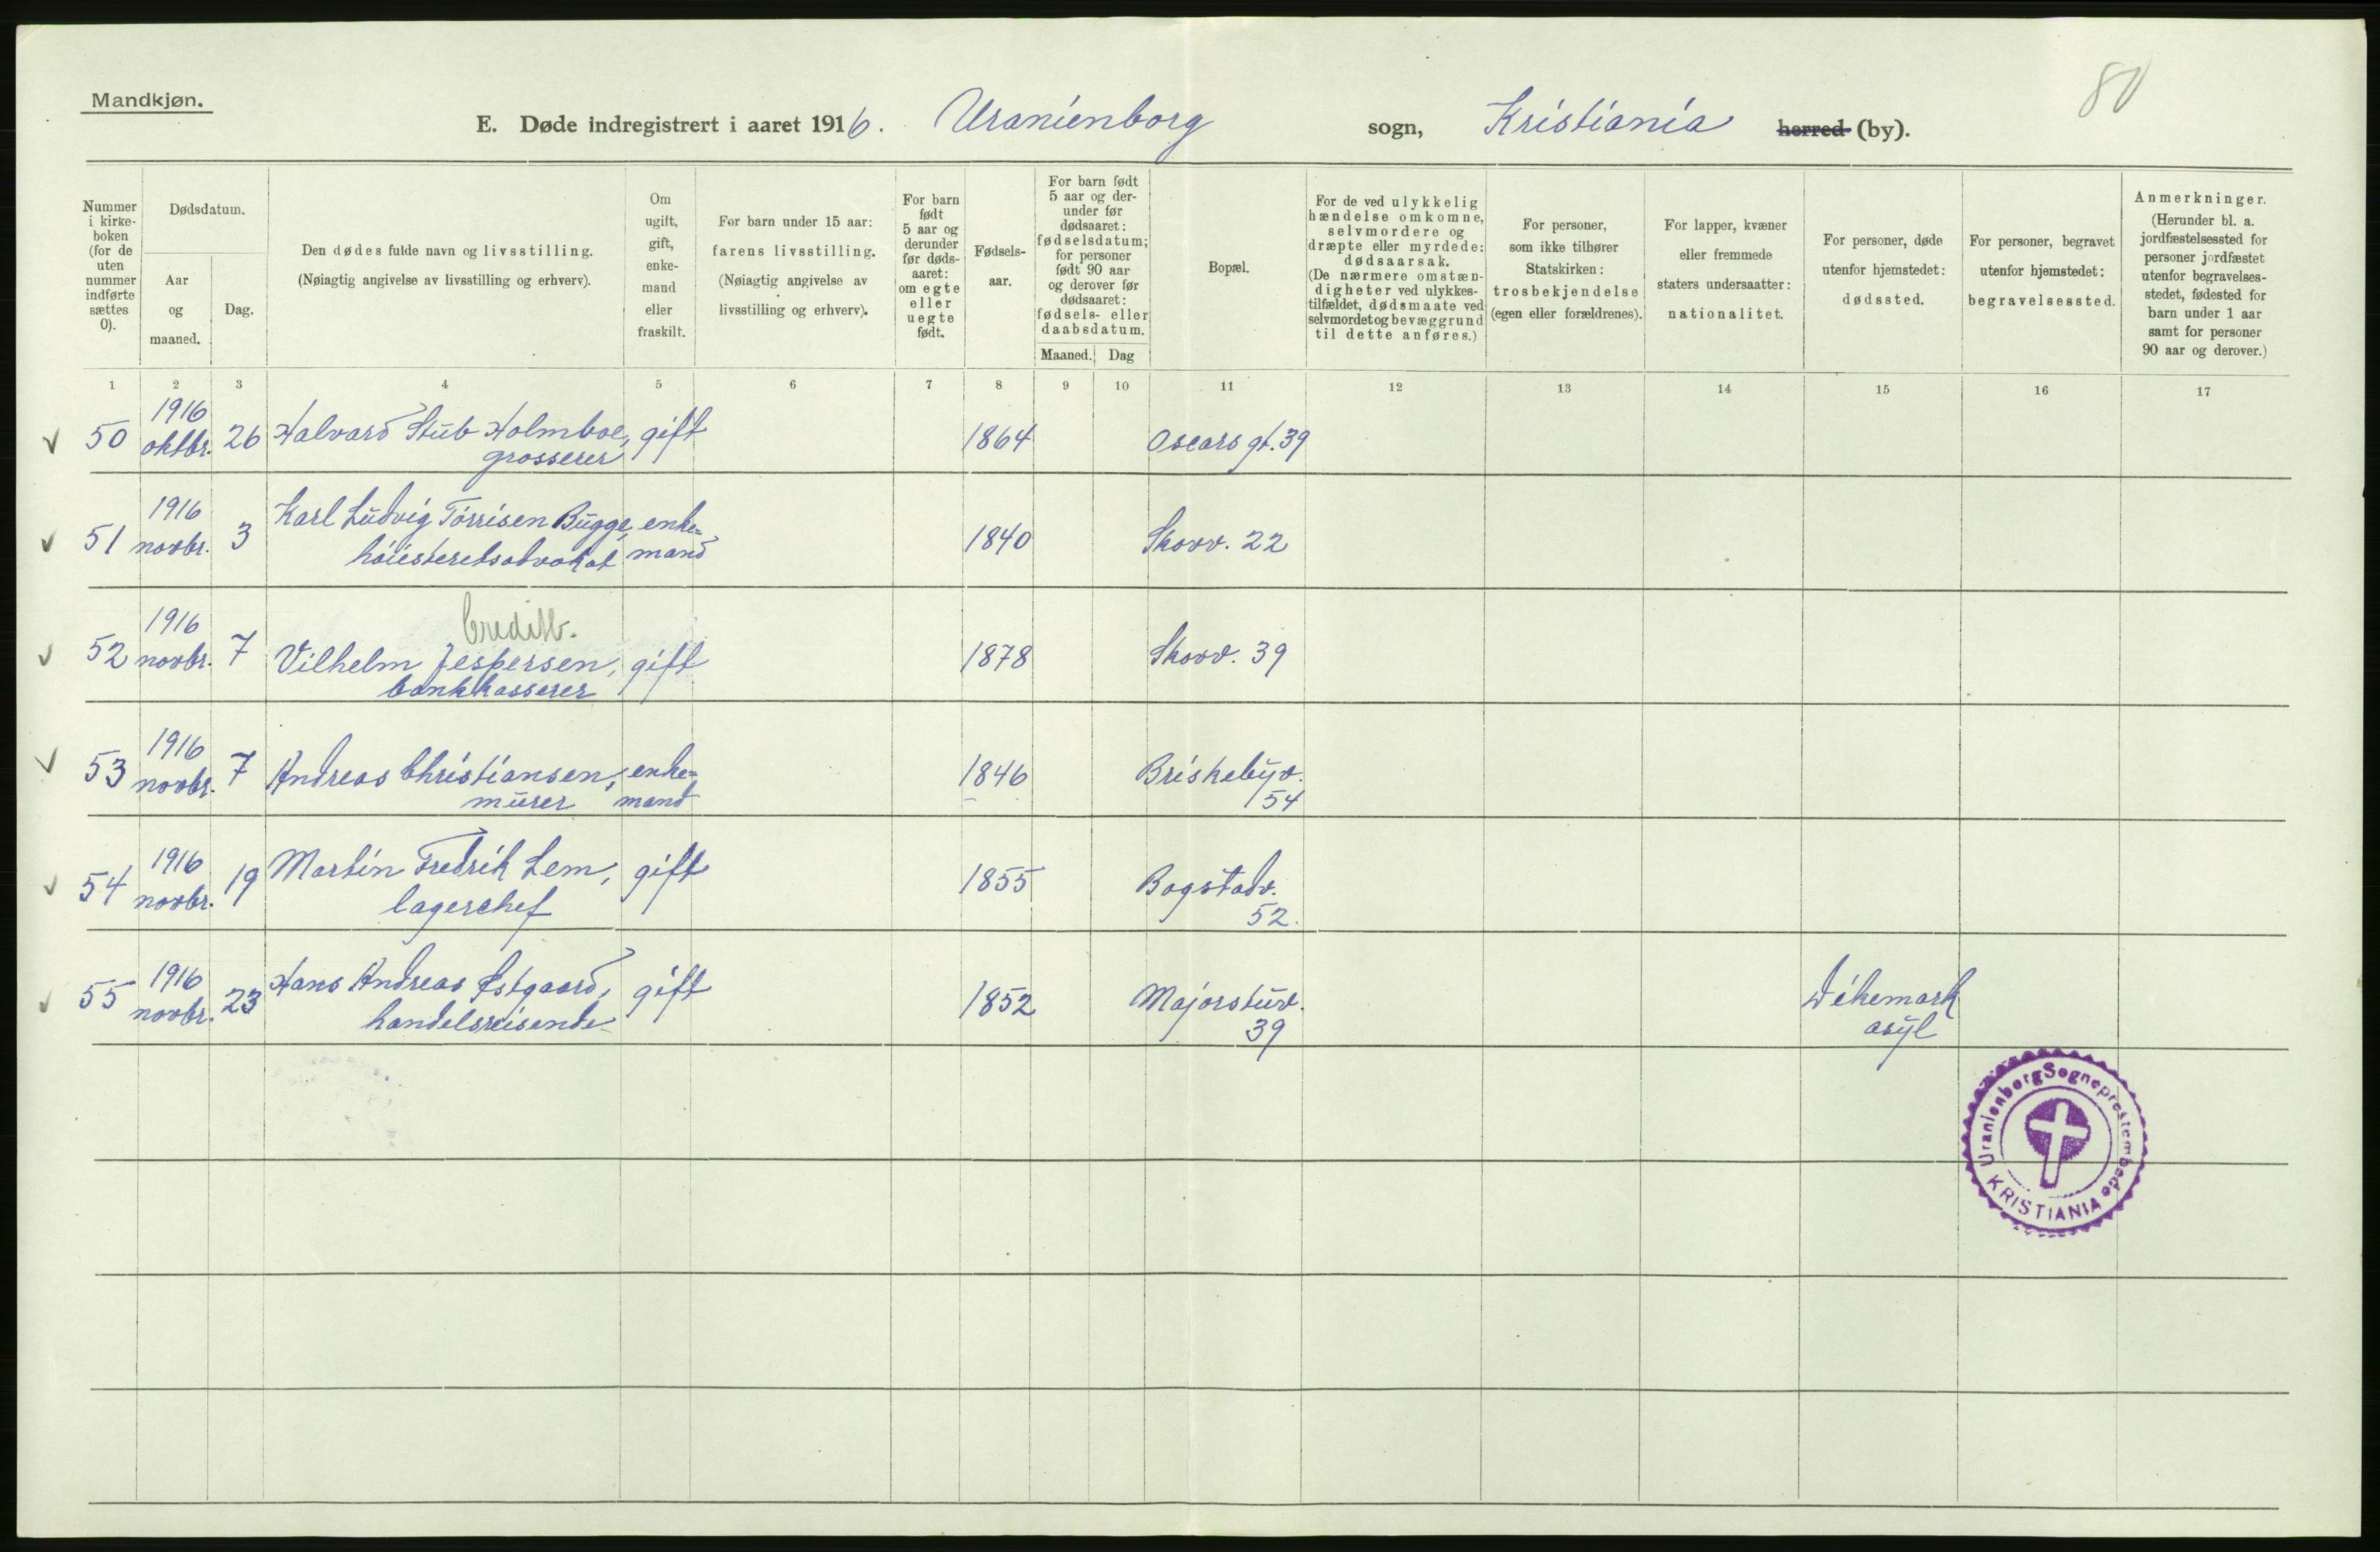 Mandkjøn.
80
E. Døde indregistrert i aaret 1916. Uranienborg sogn, Kristiania herred (by).
Nummer i kirke-boken (for de uten nummer indførte sættes 0).
Dødsdatum.
Aar og maaned.
Dag.
Den dødes fulde navn og livsstilling.
(Nøiagtig angivelse av livsstilling og erhverv).
Om ugift, gift, enke-mand eller fraskilt.
For barn under 15 aar:
farens livsstilling.
(Nøiagtig angivelse av livsstilling og erhverv).
For barn født 5 aar og derunder før døds-aaret: om egte eller uegte født.
Fødsels-aar.
For barn født 5 aar og der-under før dødsaaret: fødselsdatum; for personer født 90 aar og derover før dødsaaret: fødsels- eller daabsdatum.
Maaned. Dag
Bopæl.
For de ved ulykkelig hændelse omkomne, selvmordere og dræpte eller myrdede: dødsaarsak.
(De nærmere omstæn-digheter ved ulykkes-tilfældet, dødsmaate ved selvmordet og bevæggrund til dette anføres.)
For personer, som ikke tilhører Statskirken: trosbekjendelse (egen eller forældrenes).
For lapper, kvæner eller fremmede staters undersaatter: nationalitet.
For personer, døde utenfor hjemstedet: dødssted.
For personer, begravet utenfor hjemstedet: begravelsessted.
Anmerkninger.
(Herunder bl. a. jordfæstelsessted for personer jordfæstet utenfor begravelses-stedet, fødested for barn under 1 aar samt for personer 90 aar og derover.)
1 2 3 4 5 6 7 8 9 10 11 12 13 14 15 16 17
1916
50 oktbr. 26 Halvard Stub Holmboe, gift 1864 Oscars gt. 39
grosserer
1916
51 novbr. 3 Karl Ludvig Tórrisen Bugge, enke= 1840 Skovv. 22
höiesteretsadvokat mand
1916 Creditb.
52 novbr. 7 Vilhelm Jespersen, gift 1878 Skovv. 39
bankkasserer
1916
53 novbr. 7 Andreas Christiansen, enke= 1846 Briskebyv.
murer mand 54
1916
54 novbr. 19 Martin Fredrik Lem, gift 1855 Bogstadv.
lagerchef 52.
1916
55 novbr. 23 Hans Andreas Østgaard, gift 1852 Majorstuv. Dikemark
handelsreisende 39 asyl
Uranienborg Sogneprestembede
KRISTIANIA